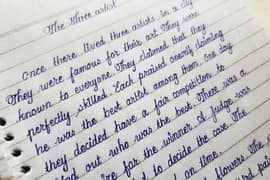 The three artist
Once there lived three artists in a city.
They were famous for their art. They were
known to everyone. They claimed that they
perfectly skilled. Each praised oneself claiming
he was the best artist among them. One day
they decided have a fair competition to
out who is the best. There was a
for the winner. A judge was
to decide the case. The
on time.
flowers. The